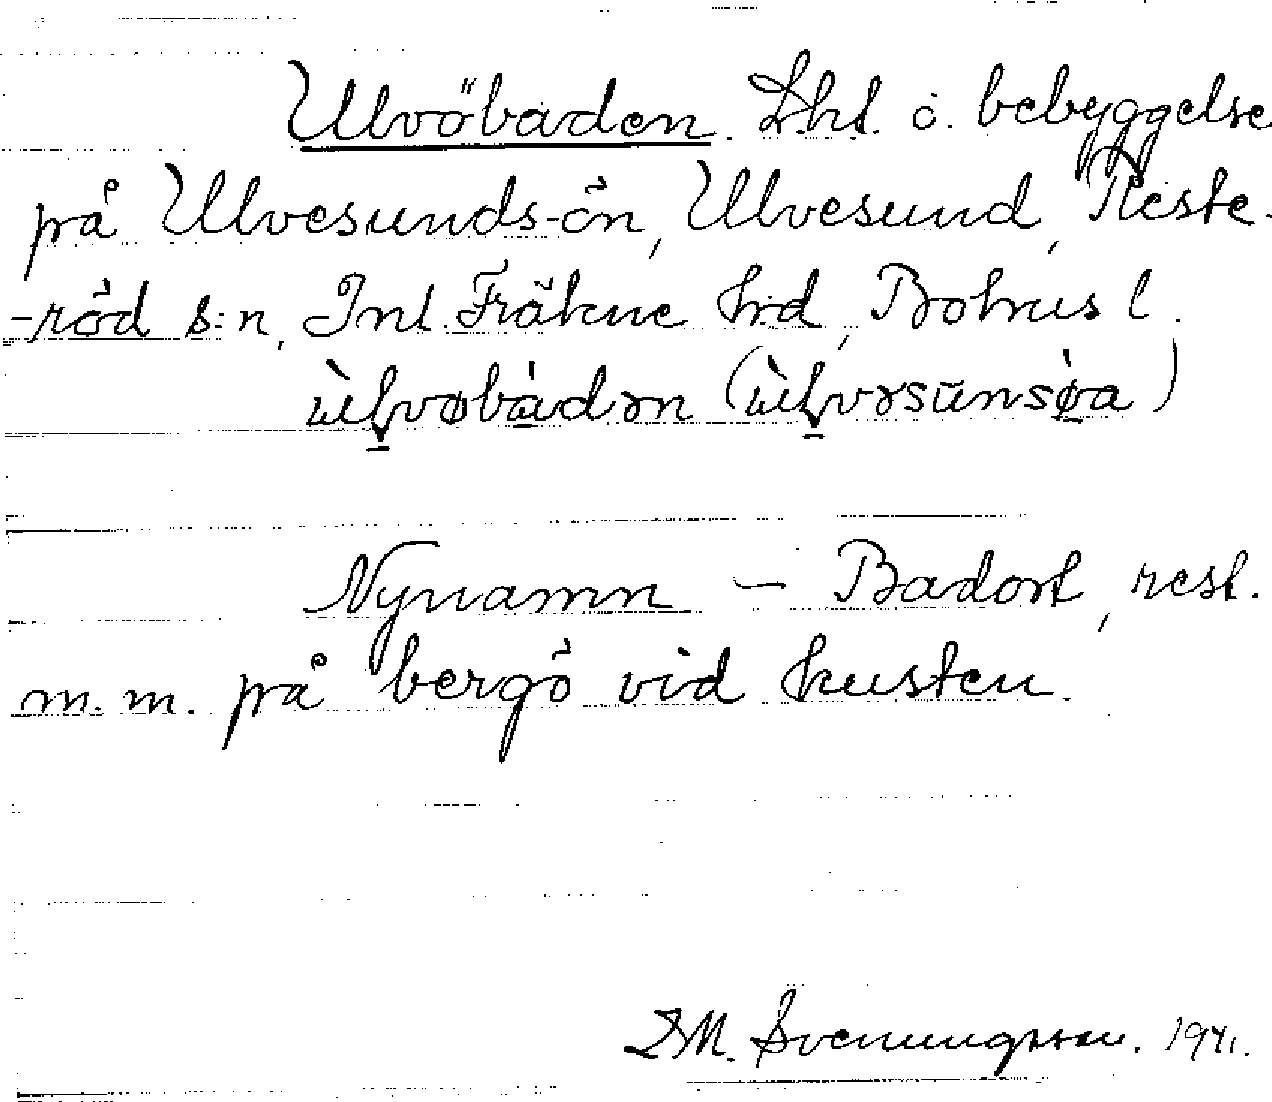 Ulvöbaden. Lht. o. bebyggelse
på Ulvesunds-ön, Ulvesund, Reste-
-röd s:n, Inl. Fräkne hd, Bohus l.
ùlvøbádən (ùlvəsūnsøa)
Nynamn – Badort, rest.
m.m. på bergö vid kusten.
M. Svenungsson. 1941.